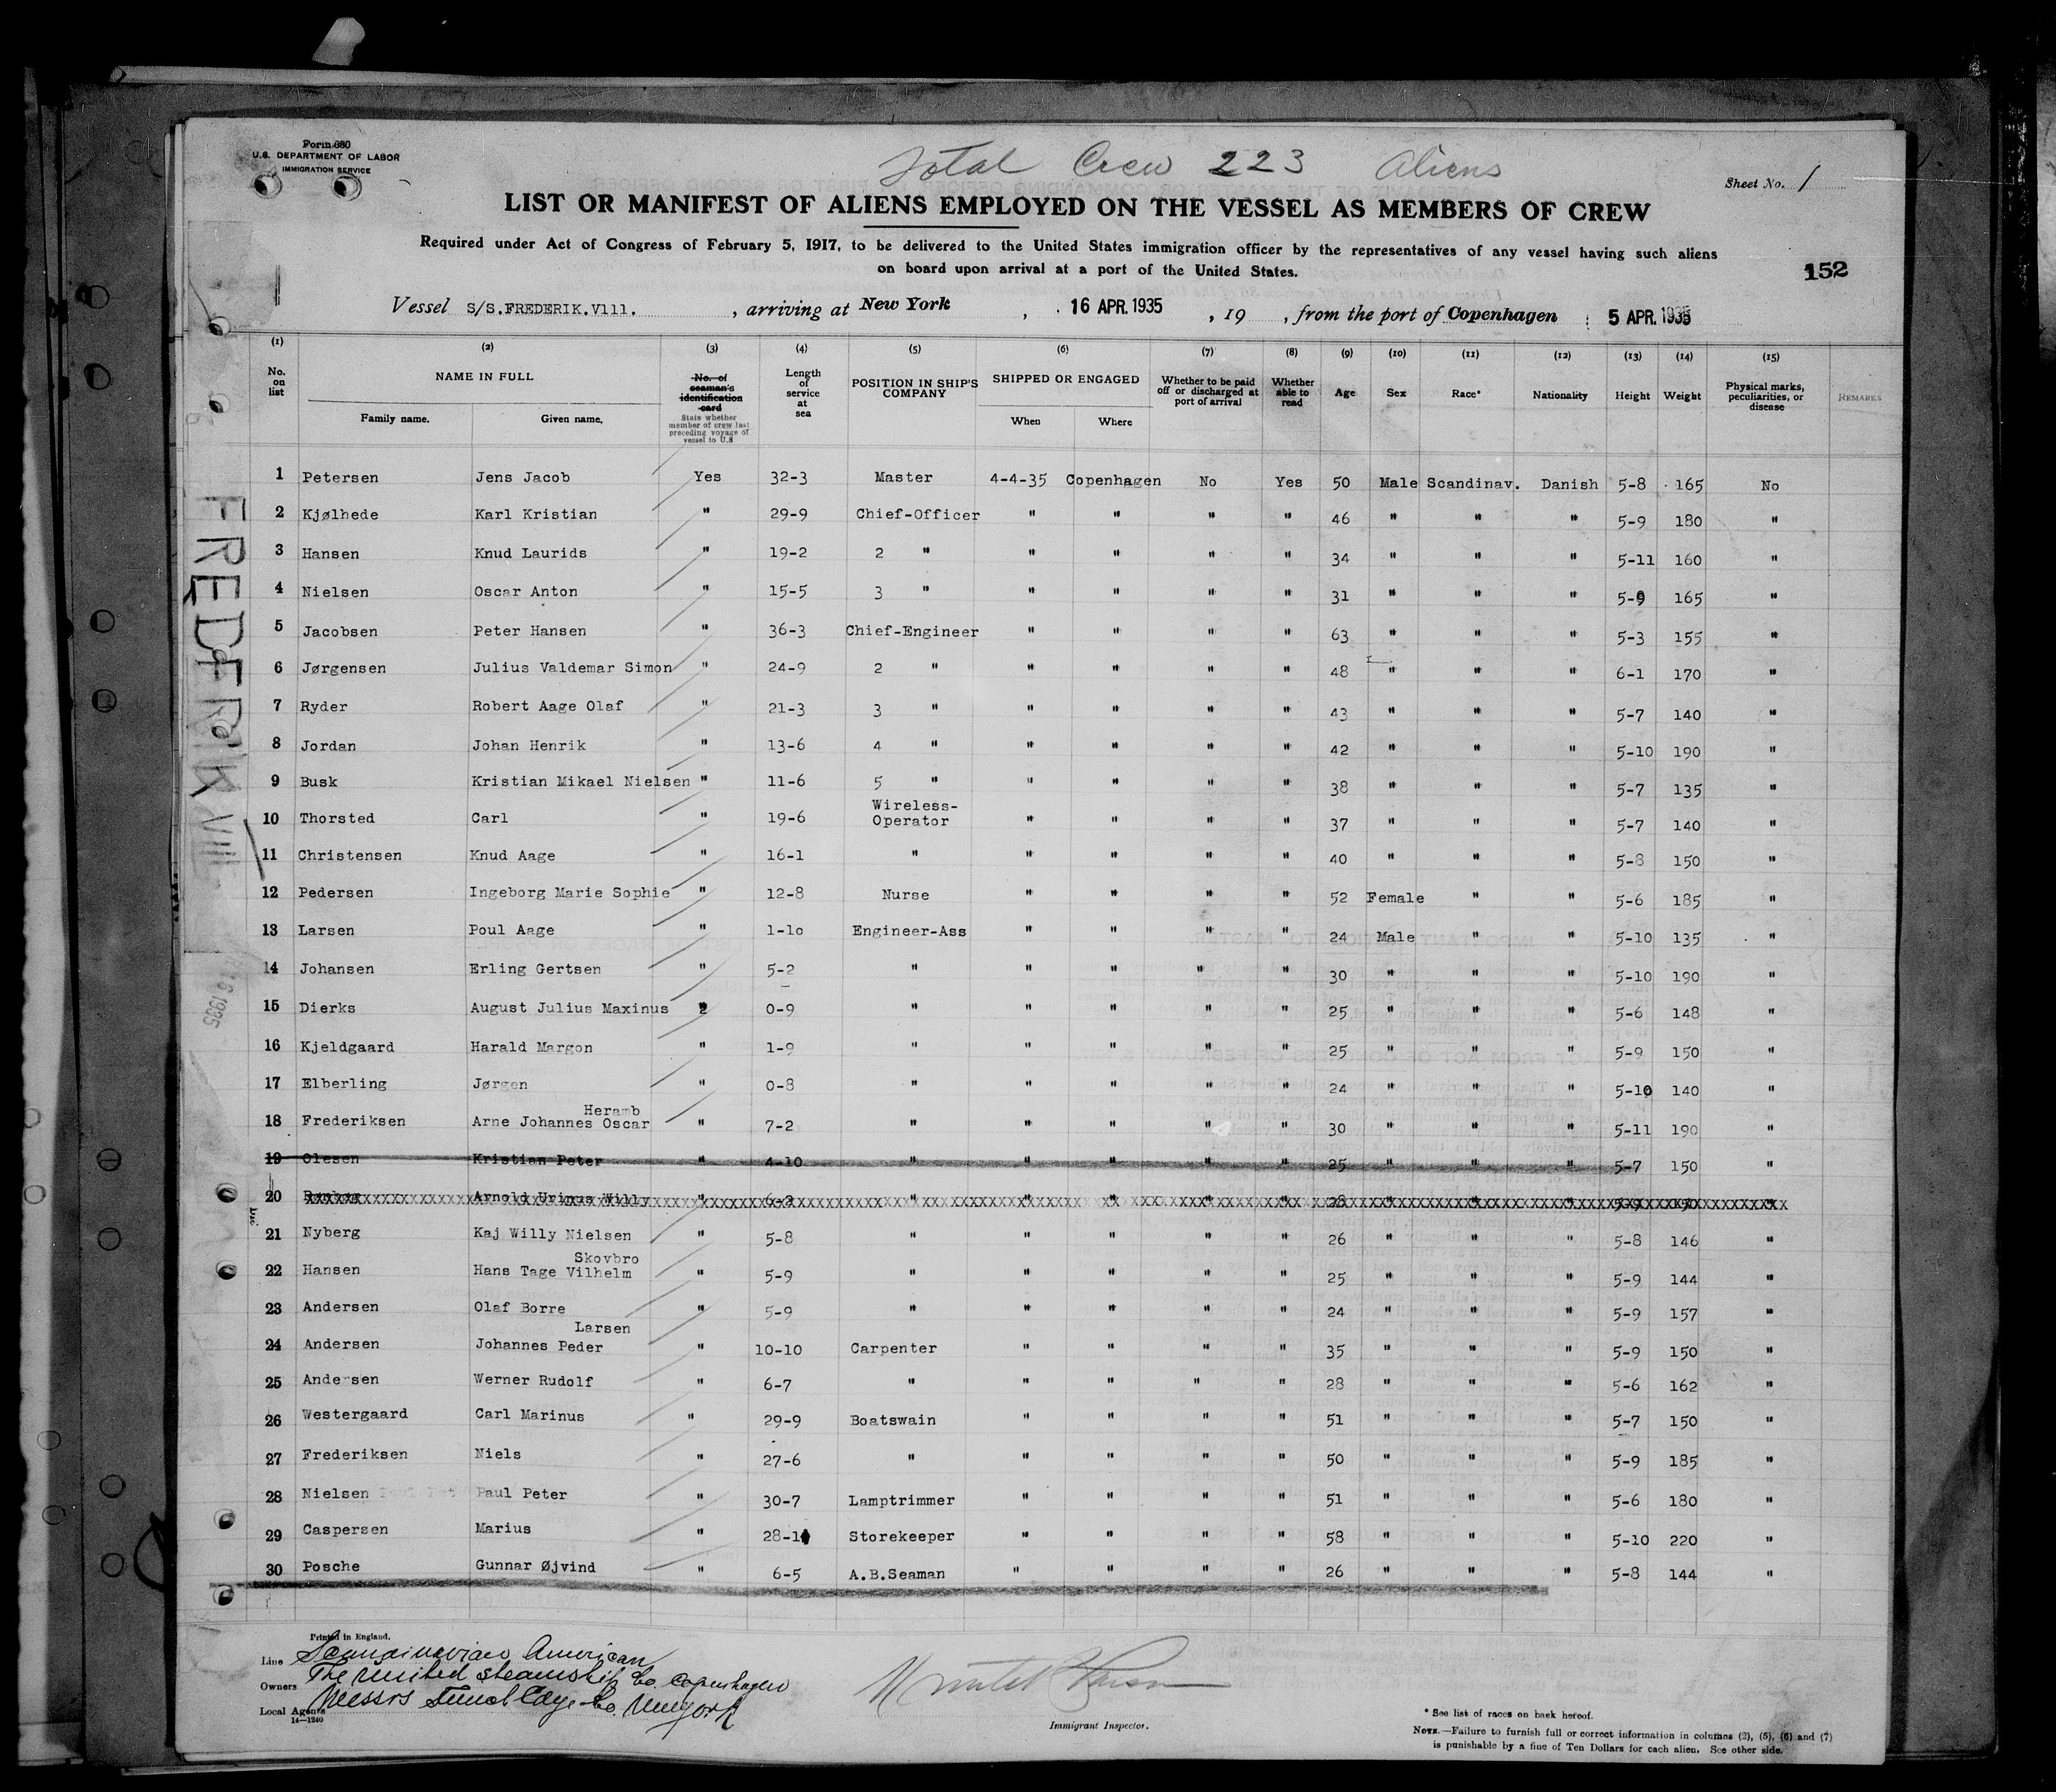 Form 680
U.S. DEPARTMENT OF LABOR
IMMIGRATION SERVICE
Total Crew 223 Aliens
Sheet No. 1
LIST OR MANIFEST OF ALIENS EMPLOYED ON THE VESSEL AS MEMBERS OF CREW
Required under Act of Congress of February 5, 1917, to be delivered to the United States immigration officer by the representatives of any vessel having such aliens
on board upon arrival at a port of the United States.
152
Vessel S/S.FREDERIK.Vlll. , arriving at New York , 16 APR. 1935 , 19 , from the port of Copenhagen 5 APR. 1935
(1) (2) (3) (4) (5) (6) (7) (8) (9) (10) (11) (12) (13) (14) (15)
No. on list NAME IN FULL Family name. Given name. No. of seaman's identification card State whether member of crew last preceding voyage of vessel to U.S. Length of service at sea POSITION IN SHIP'S COMPANY SHIPPED OR ENGAGED When Where Whether to be paid off or discharged at port of arrival Whether able to read Age Sex Race* Nationality Height Weight Physical marks, peculiarities, or disease REMARKS
1 Petersen Jens Jacob Yes 32-3 Master 4-4-35 Copenhagen No Yes 50 Male Scandinav. Danish 5-8 165 No
2 Kjølhede Karl Kristian " 29-9 Chief-Officer " " " " 46 " " " 5-9 180 "
3 Hansen Knud Laurids " 19-2 2 " " " " " 34 " " " 5-11 160 "
4 Nielsen Oscar Anton " 15-5 3 " " " " " 31 " " " 5-9 165 "
5 Jacobsen Peter Hansen " 36-3 Chief-Engineer " " " " 63 " " " 5-3 155 "
6 Jørgensen Julius Valdemar Simon " 24-9 2 " " " " " 48 " " " 6-1 170 "
7 Ryder Robert Aage Olaf " 21-3 3 " " " " " 43 " " " 5-7 140 "
8 Jordan Johan Henrik " 13-6 4 " " " " " 42 " " " 5-10 190 "
9 Busk Kristian Mikael Nielsen " 11-6 5 " " " " " 38 " " " 5-7 135 "
10 Thorsted Carl " 19-6 Wireless-Operator " " " " 37 " " " 5-7 140 "
11 Christensen Knud Aage " 16-1 " " " " " 40 " " " 5-8 150 "
12 Pedersen Ingeborg Marie Sophie " 12-8 Nurse " " " " 52 Female " " 5-6 185 "
13 Larsen Poul Aage " 1-10 Engineer-Ass " " " " 24 Male " " 5-10 135 "
14 Johansen Erling Gertsen " 5-2 " " " " " 30 " " " 5-10 190 "
15 Dierks August Julius Maxinus " 0-9 " " " " " 25 " " " 5-6 148 "
16 Kjeldgaard Harald Margon " 1-9 " " " " " 25 " " " 5-9 150 "
17 Elberling Jørgen " 0-8 " " " " " 24 " " " 5-10 140 "
18 Frederiksen Arne Johannes Oscar Heramb " 7-2 " " " " " 30 " " " 5-11 190 "
19 Olesen Kristian Peter " 4-10 " " " " " 25 " " " 5-7 150 "
20 Arnold Urinus Willy " 6-2 " " " " " 28 " " " 5-9 150 "
21 Nyberg Kaj Willy Nielsen " 5-8 " " " " " 26 " " " 5-8 146 "
22 Hansen Hans Tage Vilhelm Skovbro " 5-9 " " " " " 25 " " " 5-9 144 "
23 Andersen Olaf Borre " 5-9 " " " " " 24 " " " 5-9 157 "
24 Andersen Johannes Peder Larsen " 10-10 Carpenter " " " " 35 " " " 5-9 150 "
25 Andersen Werner Rudolf " 6-7 " " " " " 28 " " " 5-6 162 "
26 Westergaard Carl Marinus " 29-9 Boatswain " " " " 51 " " " 5-7 150 "
27 Frederiksen Niels " 27-6 " " " " " 50 " " " 5-9 185 "
28 Nielsen Paul Peter " 30-7 Lamptrimmer " " " " 51 " " " 5-6 180 "
29 Caspersen Marius " 28-1 Storekeeper " " " " 58 " " " 5-10 220 "
30 Posche Gunnar Øjvind " 6-5 A.B.Seaman " " " " 26 " " " 5-8 144 "
FREDERIK VIII
Printed in England.
Line Scandinavian American
Owners The United Steamship Co. Copenhagen
Local Agents Messrs Funch Edye Co. New York
14—1240
Immigrant Inspector.
* See list of races on back hereof.
NOTE.—Failure to furnish full or correct information in columns (2), (5), (6) and (7)
is punishable by a fine of Ten Dollars for each alien. See other side.